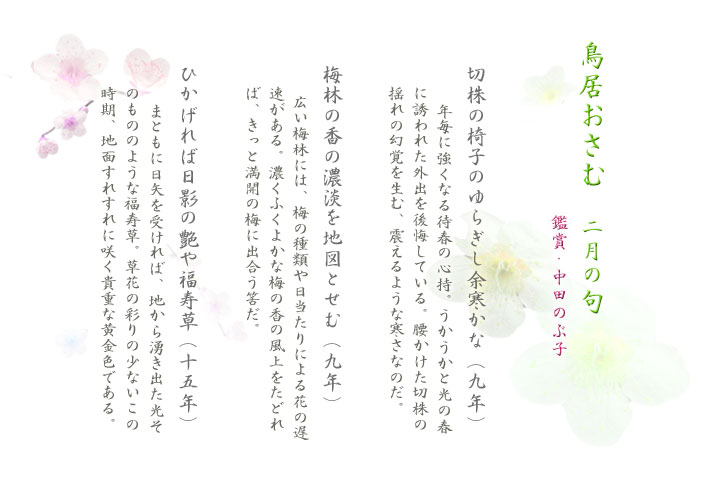 鳥居おさむ 二月の句
鑑賞・中田のぶ子
切株の椅子のゆらぎし余寒かな(九年)
年毎に強くなる待春の心持。うかうかと光の春
に誘われた外出を後悔している。腰かけた切株の
揺れの幻覚を生む、震えるような寒さなのだ。
梅林の香の濃淡を地図とせむ(九年)
広い梅林には、梅の種類や日当たりによる花の遅
速がある。濃くふくよかな梅の香の風上をたどれ
ば、きっと満開の梅に出合う筈だ。
ひかげれば日影の艶や福寿草(十五年)
まともに日矢を受ければ、地から湧き出た光そ
のもののような福寿草。草花の彩りの少ないこの
時期、地面すれすれに咲く貴重な黄金色である。